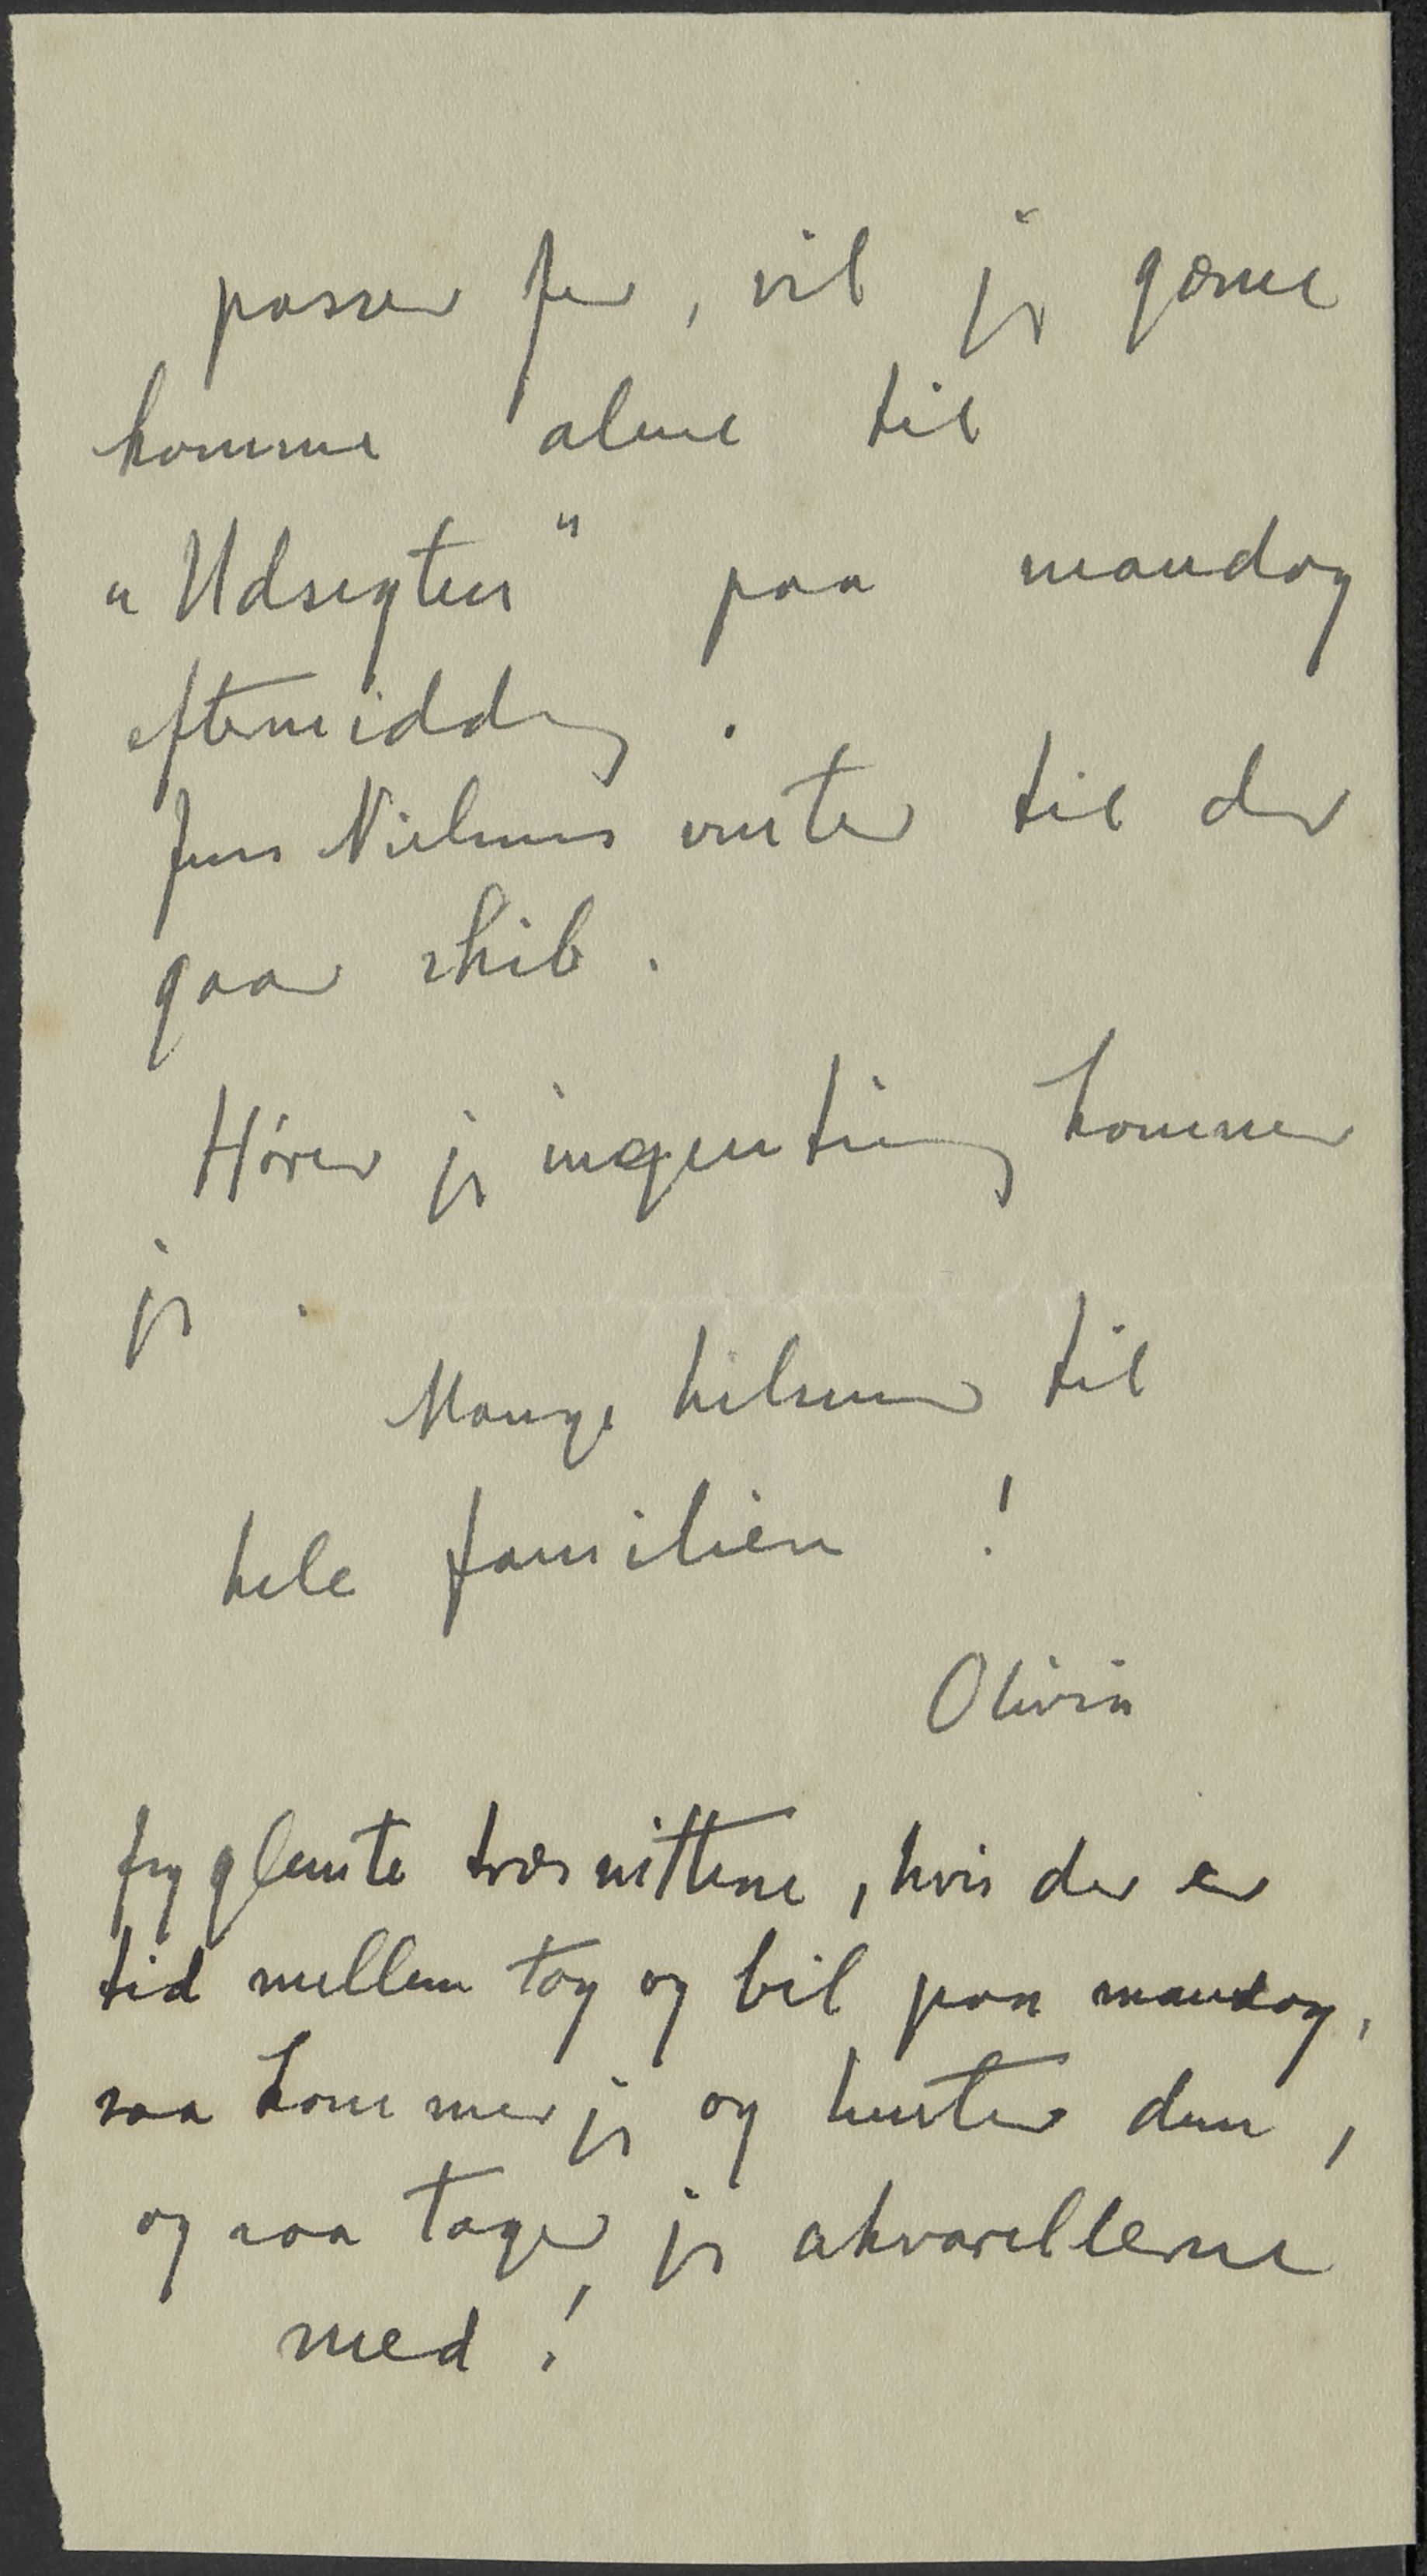 passer jer, vil jeg gærne
komme alene til
"Udsigten" paa mandag
eftermiddag.
Jens Nielsens venter til der
gaar skib.
Hører jeg ingenting kommer
jeg.
Mange hilsener til
hele familien!
Olivia
Jeg glemte træsnittene, hvis der er
tid mellem tog og bil paa mandag,
saa kommer jeg og henter dem,
og saa tager jeg akvarellerne
med!